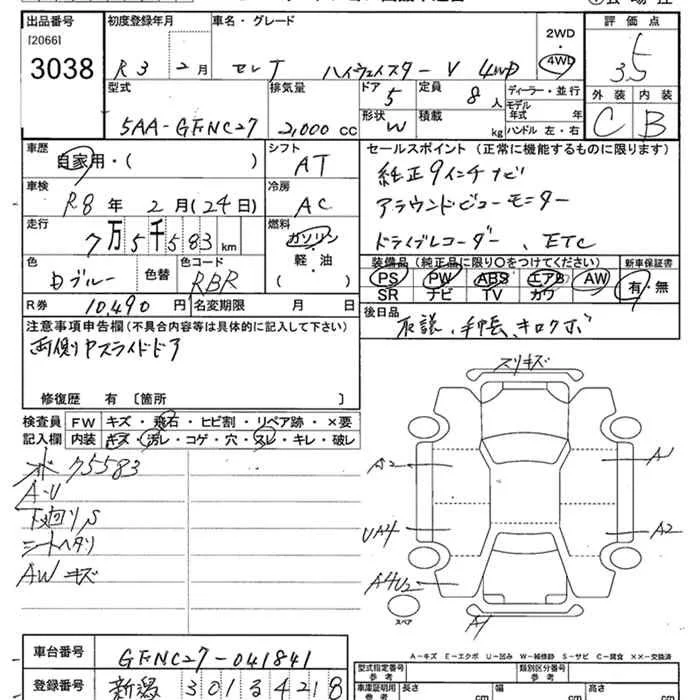 出品番号
[2066]
3038
初度登録年月
R3 年 2 月
車名・グレード
セレナ ハイウェイスター V 4WD
2WD・4WD
評価点
3.5
型式
5AA-GFNC27
排気量
2,000 cc
ドア 5
形状 W
定員 8 人
積載 kg
ディーラー・並行
モデル年式 年
ハンドル 左・右
外装 C
内装 B
車歴
自家用・( )
シフト
AT
車検
R8 年 2 月 (24 日)
冷房
AC
走行
7万5千583 km
燃料
ガソリン・軽・油
( )
色
Dブルー
色替
色コード
RBR
R券 10,490 円
名変期限 月 日
セールスポイント (正常に機能するものに限ります)
純正9インチナビ
アラウンドビューモニター
ドライブレコーダー、ETC
装備品 (純正品に限り○をつけてください)
PS PW ABS エアB AW
SR ナビ TV カワ
新車保証書
有・無
後日品
取説、手帳、キロクボ
注意事項申告欄(不具合内容等は具体的に記入して下さい)
両側Pスライドドア
修復歴 有〔箇所 〕
検査員記入欄
FW キズ・飛石・ヒビ割・リペア跡・×要
内装 キズ・汚レ・コゲ・穴・スレ・キレ・破レ
75583
A-U
下廻りS
シートヘタリ
AW キズ
スリキズ
A2
A1
UA4
A2
A4U2
A1
スペア
A…キズ E…エクボ U…凹み W…補修跡 S…サビ C…腐食 XX…交換済
車台番号
GFNC27-041841
登録番号
新潟 301 る 4218
型式指定番号
参考
類別区分番号
参考
車庫証明用
参考
長さ cm
幅 cm
高さ cm